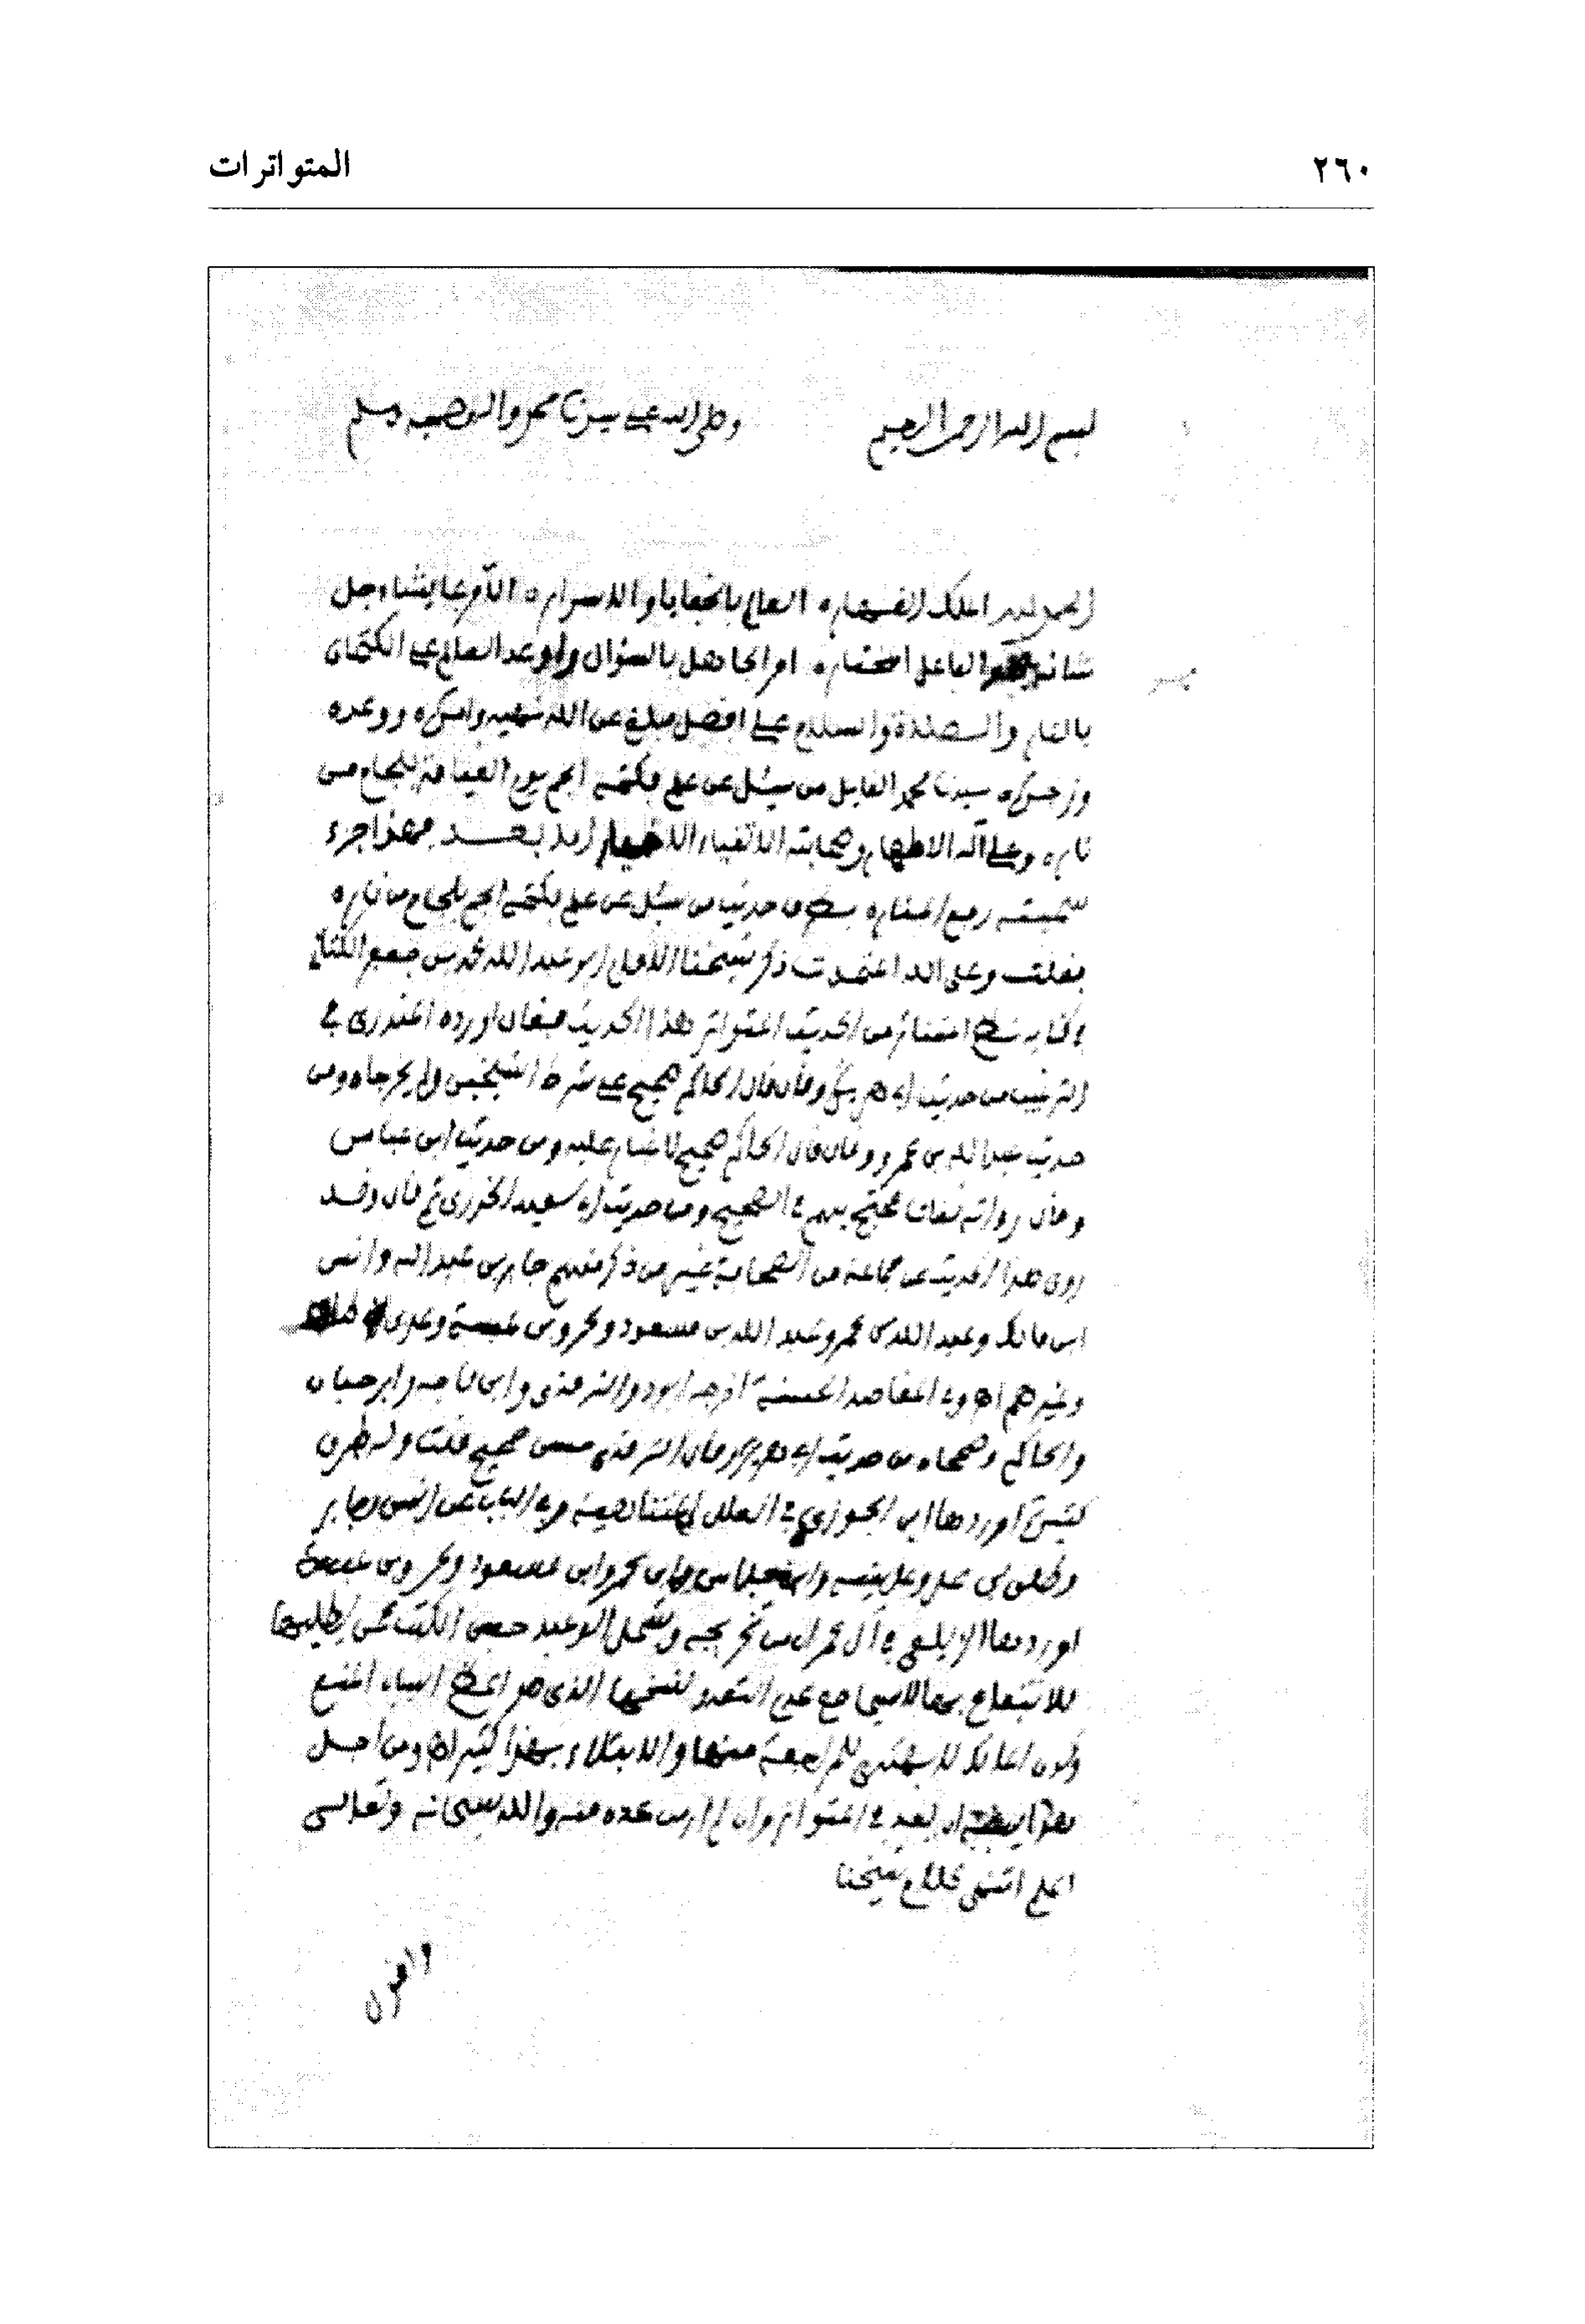 ٢٦٠
المتواترات
بسم الله الرحمن الرحيم وصلى الله على سيدنا محمد واله وصحبه وسلم
الحمد لله الملك القهار، العالم بالخفايا والاسرار، الآمر بما يشاء وجل
شانه الفاعل المختار، امر الجاهل بالسؤال واوعد العالم على الكتمان
بالنار والصلاة والسلام على افضل مبلغ عن الله نهيه وامره، ووعده
وزجره، سيدنا محمد القايل من سئل عن علم فكتمه الجم يوم القيامة بلجام من
ناره، وعلى آله الاطهار وصحابته الاتقياء الاخيار اما بعد فهذا جزء
سميته رفع المناره بطرق حديث من سئل عن علم فكتمه الجم بلجام من ناره
فقلت وعلى الله اعتمدت ذكر شيخنا الامام ابو عبد الله محمد بن جعفر الكتاني
في كتابه نظم المتناثر من الحديث المتواتر هذا الحديث فقال اورده المنذري في
الترغيب من حديث ابي هريرة وقال قال الحاكم صحيح على شرط الشيخين ولم يخرجاه ومن
حديث عبد الله بن عمرو وقال قال الحاكم صحيح لا غبار عليه ومن حديث ابن عباس
وقال رواته ثقات محتج بهم في الصحيح ومن حديث ابي سعيد الخدري ثم قال وقد
روي هذا الحديث عن جماعة من الصحابة غير من ذكر منهم جابر بن عبد الله وانس
ابن مالك وعبد الله بن عمر وعبد الله بن مسعود وعمرو بن عبسة وعلي بن طلق
وغيرهم اهـ وفي المقاصد الحسنة اخرجه ابو داود والترمذي وابن ماجه وابن حبان
والحاكم وصححاه من حديث ابي هريرة وقال الترمذي حسن صحيح قلت وله طرق
كثيرة اوردها ابن الجوزي في العلل المتناهية وفي الباب عن انس وجابر
وطلق بن علي وعايشة وابن عباس وابن عمر وابن مسعود وعمرو بن عبسة
اوردها الزيلعي في آل عمران من تخريجه ويشمل الوعيد حبس الكتب عمن يطلبها
للانتفاع بها لا سيما مع عدم التعدد لنسخها الذي هو اعظم اسباب المنع
وكون المالك لا يهتدي للمراجعة منها والابتلاء بهذا كثير اهـ ومن اجل
هذا ان يعد في المتواتر وان لم ار من عده منه والله سبحانه وتعالى
اعلم انتهى كلام شيخنا